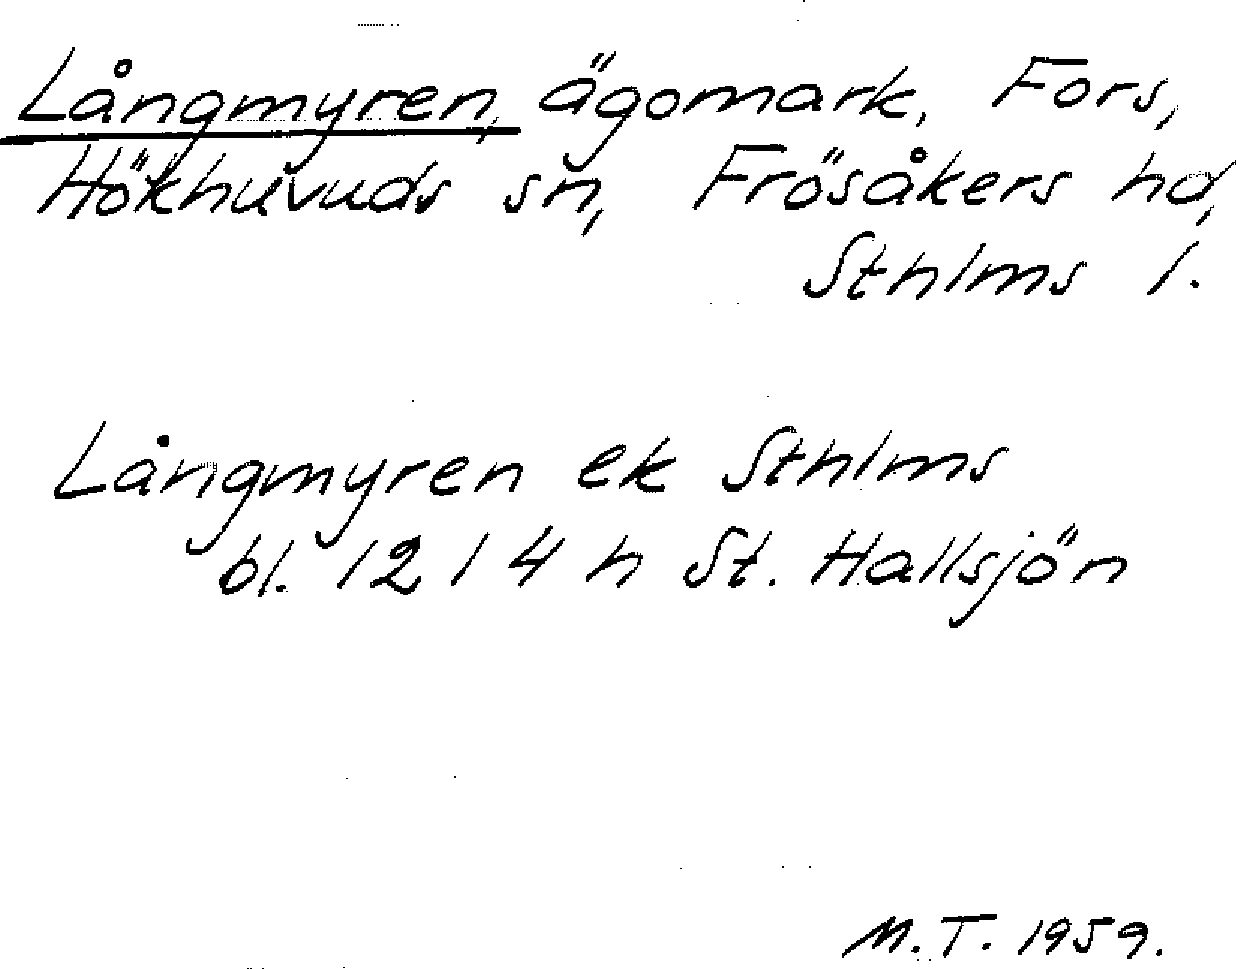 Långmyren, ägomark, Fors,
Hökhuvuds sn, Frösåkers hd,
Sthlms l.
Långmyren ek Sthlms
bl. 12 1 4 h St. Hallsjön
M.T. 1959.